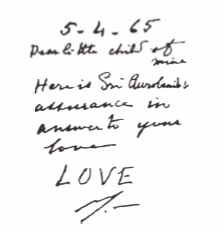 5-4-65
Dear little child of
mine
Here is Sri Aurobindo's
assurance in
answer to your
love
LOVE